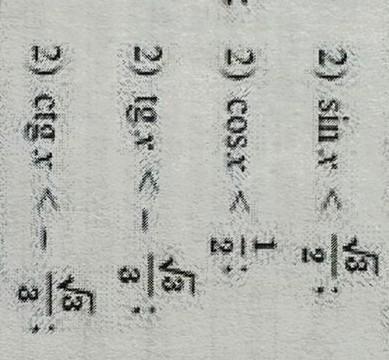 2) sin x < √3/2;
2) cos x < 1/2;
2) tg x < −√3/3;
2) ctg x < −√3/3;